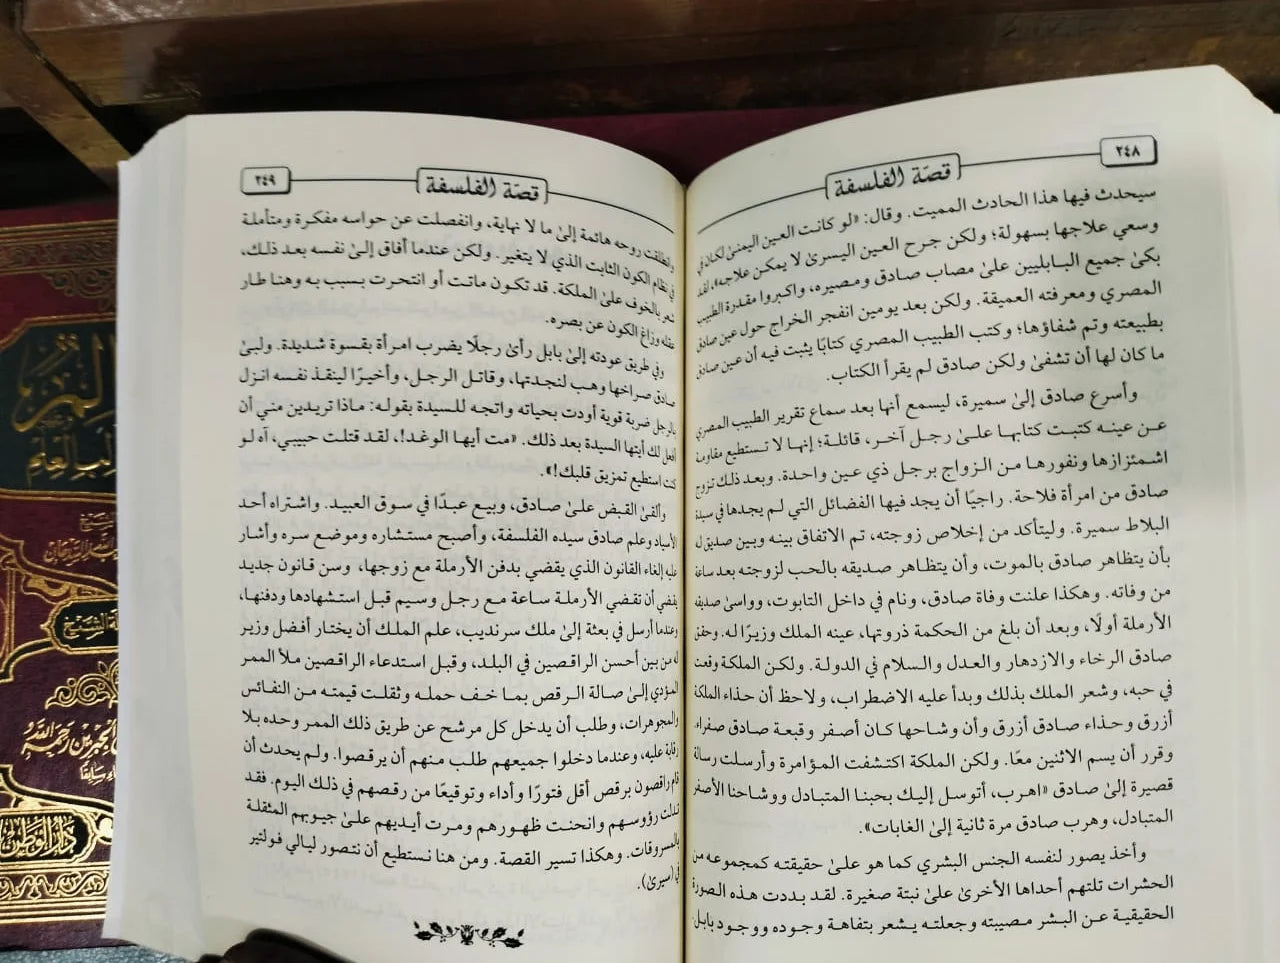 ٢٤٨
قصة الفلسفة
سيحدث فيها هذا الحادث المميت. وقال: «لو كانت العين اليمنىٰ لكان في
وسعي علاجها بسهولة؛ ولكن جرح العين اليسرىٰ لا يمكن علاجه»، لقد
بكىٰ جميع البابليين علىٰ مصاب صادق ومصيره، واكبروا مقدرة الطبيب
المصري ومعرفته العميقة. ولكن بعد يومين انفجر الخراج حول عين صادق
بطبيعته وتم شفاؤها؛ وكتب الطبيب المصري كتابًا يثبت فيه أن عين صادق
ما كان لها أن تشفىٰ ولكن صادق لم يقرأ الكتاب.
وأسرع صادق إلىٰ سميرة، ليسمع أنها بعد سماع تقرير الطبيب المصري
عن عينه كتبت كتابها علىٰ رجل آخر، قائلة؛ إنها لا تستطيع مقاومة
اشمئزازها ونفورها من الزواج برجل ذي عين واحدة. وبعد ذلك تزوج
صادق من امرأة فلاحة. راجيًا أن يجد فيها الفضائل التي لم يجدها في سيدة
البلاط سميرة. وليتأكد من إخلاص زوجته، تم الاتفاق بينه وبين صديق له
بأن يتظاهر صادق بالموت، وأن يتظاهر صديقه بالحب لزوجته بعد ساعة
من وفاته. وهكذا علنت وفاة صادق، ونام في داخل التابوت، وواسىٰ صديقه
الأرملة أولًا، وبعد أن بلغ من الحكمة ذروتها، عينه الملك وزيرًا له. وحقق
صادق الرخاء والازدهار والعدل والسلام في الدولة. ولكن الملكة وقعت
في حبه، وشعر الملك بذلك وبدأ عليه الاضطراب، ولاحظ أن حذاء الملكة
أزرق وحذاء صادق أزرق وأن وشاحها كان أصفر وقبعة صادق صفراء.
وقرر أن يسم الاثنين معًا. ولكن الملكة اكتشفت المؤامرة وأرسلت رسالة
قصيرة إلىٰ صادق «اهرب، أتوسل إليك بحبنا المتبادل ووشاحنا الأصفر
المتبادل، وهرب صادق مرة ثانية إلىٰ الغابات».
وأخذ يصور لنفسه الجنس البشري كما هو علىٰ حقيقته كمجموعه من
الحشرات تلتهم أحداها الأخرىٰ علىٰ نبتة صغيرة. لقد بددت هذه الصورة
الحقيقية عن البشر مصيبته وجعلته يشعر بتفاهة وجوده ووجود بابل
٢٤٩
قصة الفلسفة
وانطلقت روحه هائمة إلىٰ ما لا نهاية، وانفصلت عن حواسه مفكرة ومتأملة
في نظام الكون الثابت الذي لا يتغير. ولكن عندما أفاق إلىٰ نفسه بعد ذلك،
شعر بالخوف علىٰ الملكة. قد تكون ماتت أو انتحرت بسبب به وهنا طار
عقله وزاغ الكون عن بصره.
وفي طريق عودته إلىٰ بابل رأىٰ رجلًا يضرب امرأة بقسوة شديدة. ولبىٰ
صادق صراخها وهب لنجدتها، وقاتل الرجل، وأخيرًا لينقذ نفسه انزل
بالرجل ضربة قوية أودت بحياته واتجه للسيدة بقوله: ماذا تريدين مني أن
أفعل لك أيتها السيدة بعد ذلك. «مت أيها الوغد!، لقد قتلت حبيبي، آه لو
كنت استطيع تمزيق قلبك!».
وألقىٰ القبض علىٰ صادق، وبيع عبدًا في سوق العبيد. واشتراه أحد
الأسياد وعلم صادق سيده الفلسفة، وأصبح مستشاره وموضع سره وأشار
عليه إلغاء القانون الذي يقضي بدفن الأرملة مع زوجها، وسن قانون جديد
يقضي أن تقضي الأرملة ساعة مع رجل وسيم قبل استشهادها ودفنها،
وعندما أرسل في بعثة إلىٰ ملك سرنديب، علم الملك أن يختار أفضل وزير
له من بين أحسن الراقصين في البلد، وقبل استدعاء الراقصين ملأ الممر
المؤدي إلىٰ صالة الرقص بما خف حمله وثقلت قيمته من النفائس
والمجوهرات، وطلب أن يدخل كل مرشح عن طريق ذلك الممر وحده بلا
رقابة عليه، وعندما دخلوا جميعهم طلب منهم أن يرقصوا. ولم يحدث أن
قام راقصون برقص أقل فتورًا وأداء وتوقيعًا من رقصهم في ذلك اليوم. فقد
تدلت رؤوسهم وانحنت ظهورهم ومرت أيديهم علىٰ جيوبهم المثقلة
بالمسروقات. وهكذا تسير القصة. ومن هنا نستطيع أن نتصور ليالي فولتير
في (سيرىٰ).
دار الوطن